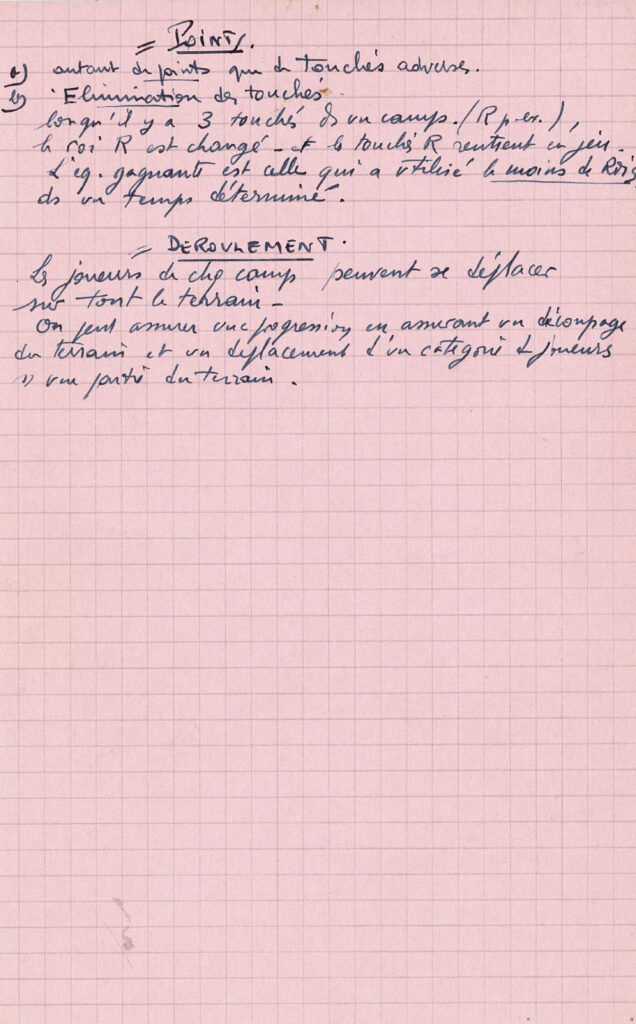 = POINTS.
a) autant de points que de touchés adverses.
b) Elimination des touchés
lorsqu'il y a 3 touchés ds un camp. (R p. ex.),
le roi R est changé - et le touchés R rentrent en jeu.
L'eq. gagnante est celle qui a utilisé le moins de Rois
ds un temps déterminé.
= DEROULEMENT.
Les joueurs de chq camp peuvent se déplacer
sur tout le terrain -
On peut assurer une progression en assurant un découpage
du terrain et un déplacement d'un categorie de joueurs
une partie du terrain.